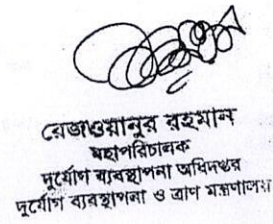 রেজওয়ানুর রহমান
মহাপরিচালক
দুর্যোগ ব্যবস্থাপনা অধিদপ্তর
দুর্যোগ ব্যবস্থাপনা ও ত্রাণ মন্ত্রণালয়